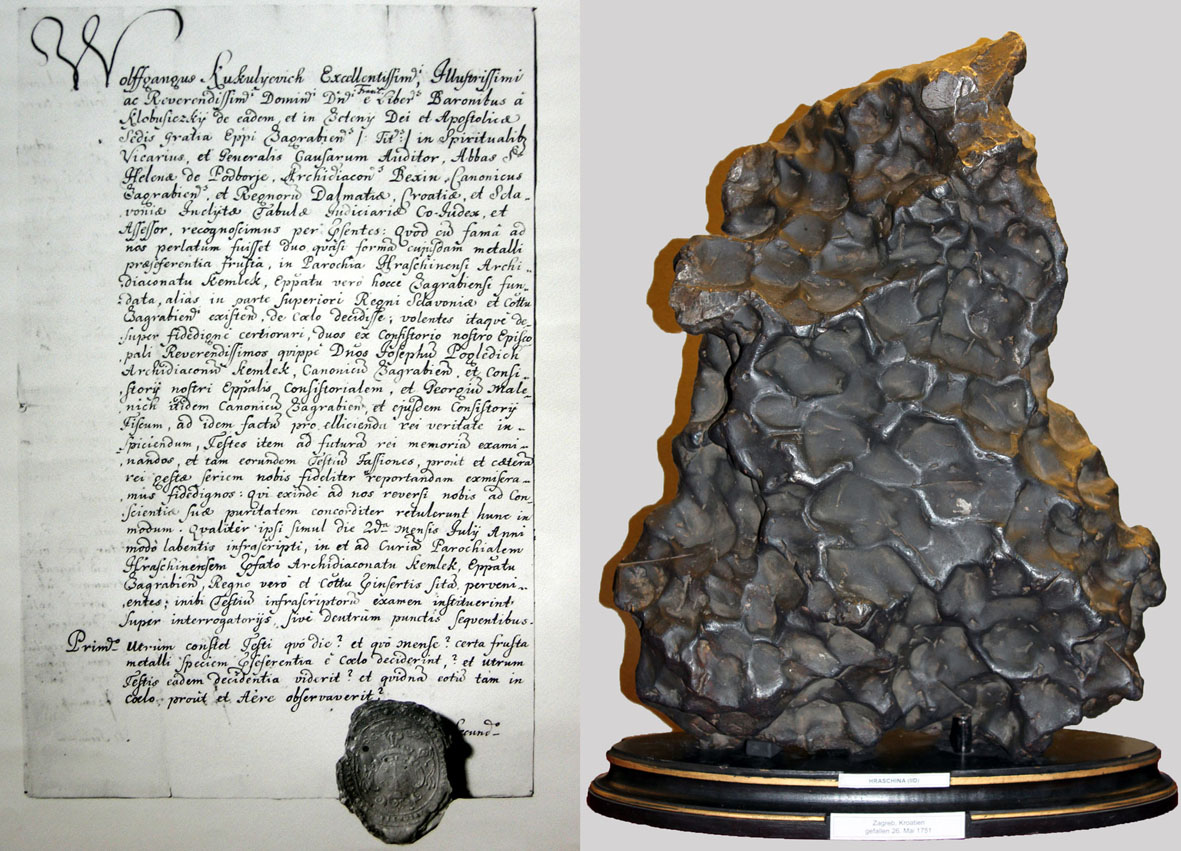 Wolffgangus Kukulyevich Excellentissim̃i, Illustrissimi
ac Reverendissim̃i Domini Dñi Franc. è Liber̃s Baronibus à
Klobusiczkij de eadem, et in Zeteny Dei et Apostolicæ
Sedis gratia Eppi Zagrabien̄s / Titt: / in Spiritualib
Vicarius, et Generalis Causarum Auditor, Abbas S.
Helenæ de Podborje, Archidiacon̄s Bexin, Canonicus
Zagrabien̄s, et Regnorū Dalmatiæ, Croatiæ, et Scla-
voniæ Inclytæ Tabulæ Judiciariæ Co-Judex, et
Assessor, recognoscimus per p̄sentes: Quod cū famâ ad
nos perlatum fuisset duo quasi forma cujusdam metalli
præseferentia frusta, in Parochia Hraschinensi Archi-
diaconatu Kemlek, Eppatu verò hocce Zagrabiensi fun-
data, aliàs in parte superiori Regni Sclavoniæ et Cottu
Zagrabien existen̄, de Cœlo decidisse; volentes itaque de-
super fidedignè certiorari, duos ex Consistorio nostro Episco
pali Reverendissimos quippè Dños Josephū Pogledich
Archidiaconū Kemlek, Canonicū Zagrabien, et Consi-
storij nostri Eppalis Consistorialem, et Georgiū Male-
nich itidem Canonicū Zagrabien, et ejusdem Consistorij
Fiscum, ad idem factū pro ellicienda rei veritate in-
spiciendum, Testes item ad futurā rei memoriā exami-
nandos, et tam eorundem Testiū Fassiones, proùt et cætera
rei gestæ seriem nobis fideliter reportandam exmisera-
mus fidedignos: qui exindè ad nos reversi nobis ad Con-
scientiæ suæ puritatem concorditer retulerunt hunc in
modum. Qvaliter ipsi simul die 2da Mensis July Anni
modò labentis infrascripti, in et ad Curiā Parochialem
Hraschinensem p̄fato Archidiaconatu Kemlek, Eppatu
Zagrabien, Regno verò et Cottu p̄insertis sitā perveni-
entes; inibi Testiū infrascriptorū examen instituerint
super interrogatorijs, sivè deutrum punctis seqventibus.
Primò Utrum constet Testi quô die? et quô mense? certa frusta
metalli speciem p̄seferentia è Cœlo deciderint,? et utrum
Testis eadem decidentia viderit? et quidnā eotū tam in
Cœlo, proùt et Aëre observaverit?
Secundò
HRASCHINA (IID)
Zagreb, Kroatien
gefallen 26. Mai 1751